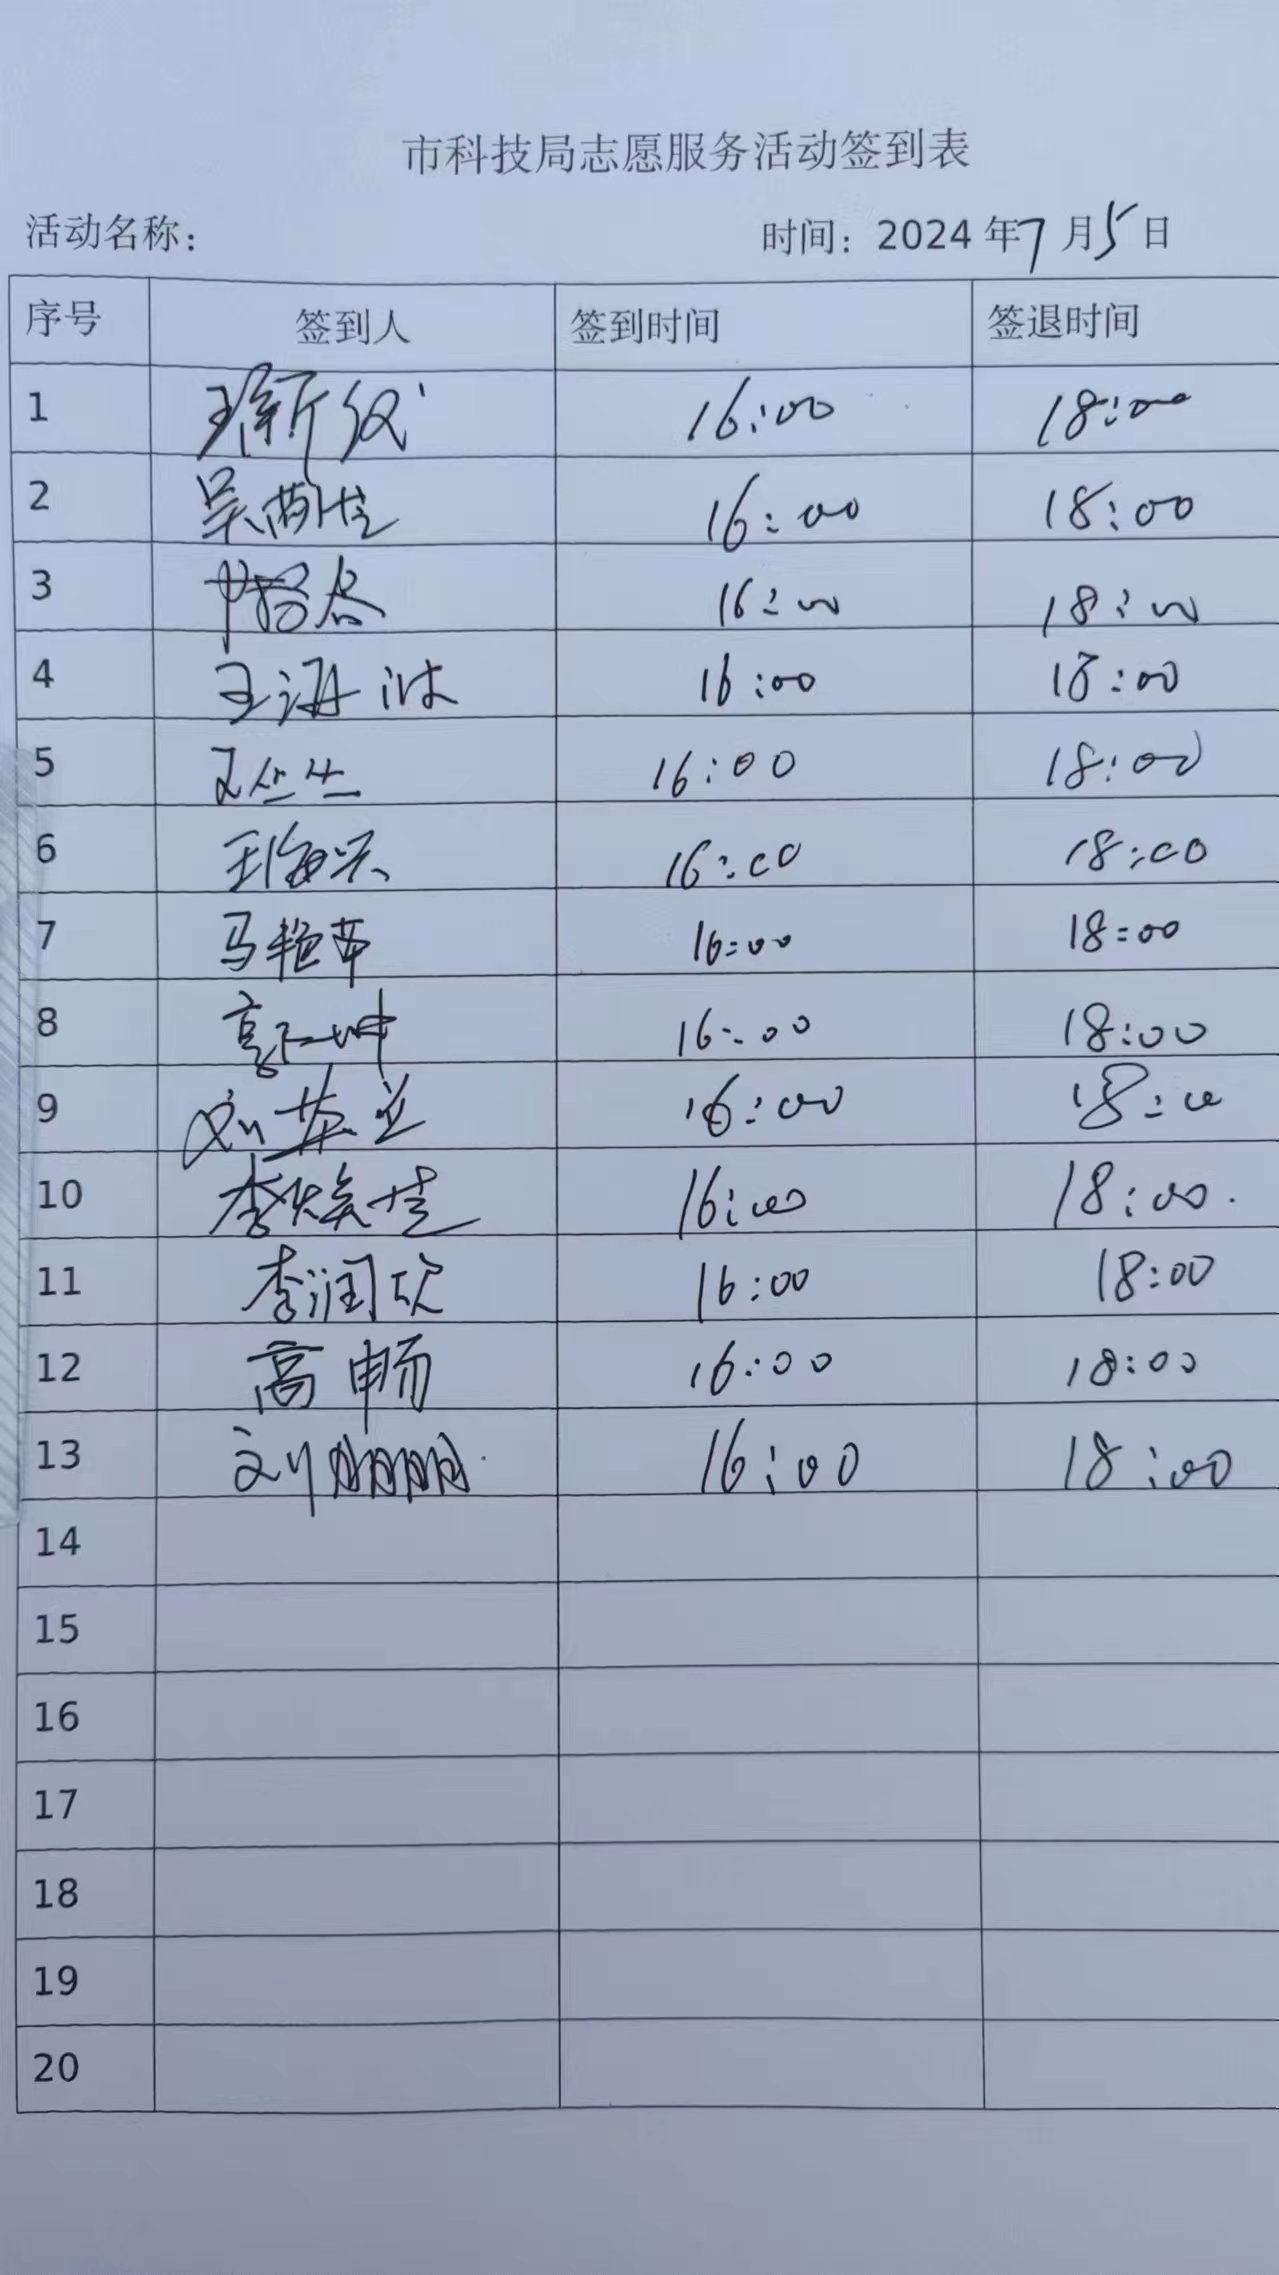 市科技局志愿服务活动签到表
活动名称： 时间：2024年7月5日
序号 签到人 签到时间 签退时间
1 王新仪 16:00 18:00
2 吴 佳 16:00 18:00
3 16:00 18:00
4 王 16:00 18:00
5 王丛丛 16:00 18:00
6 王海兴 16:00 18:00
7 马艳苹 16:00 18:00
8 16:00 18:00
9 刘 16:00 18:00
10 李焕佳 16:00 18:00.
11 李润欣 16:00 18:00
12 高畅 16:00 18:00
13 刘 16:00 18:00
14
15
16
17
18
19
20